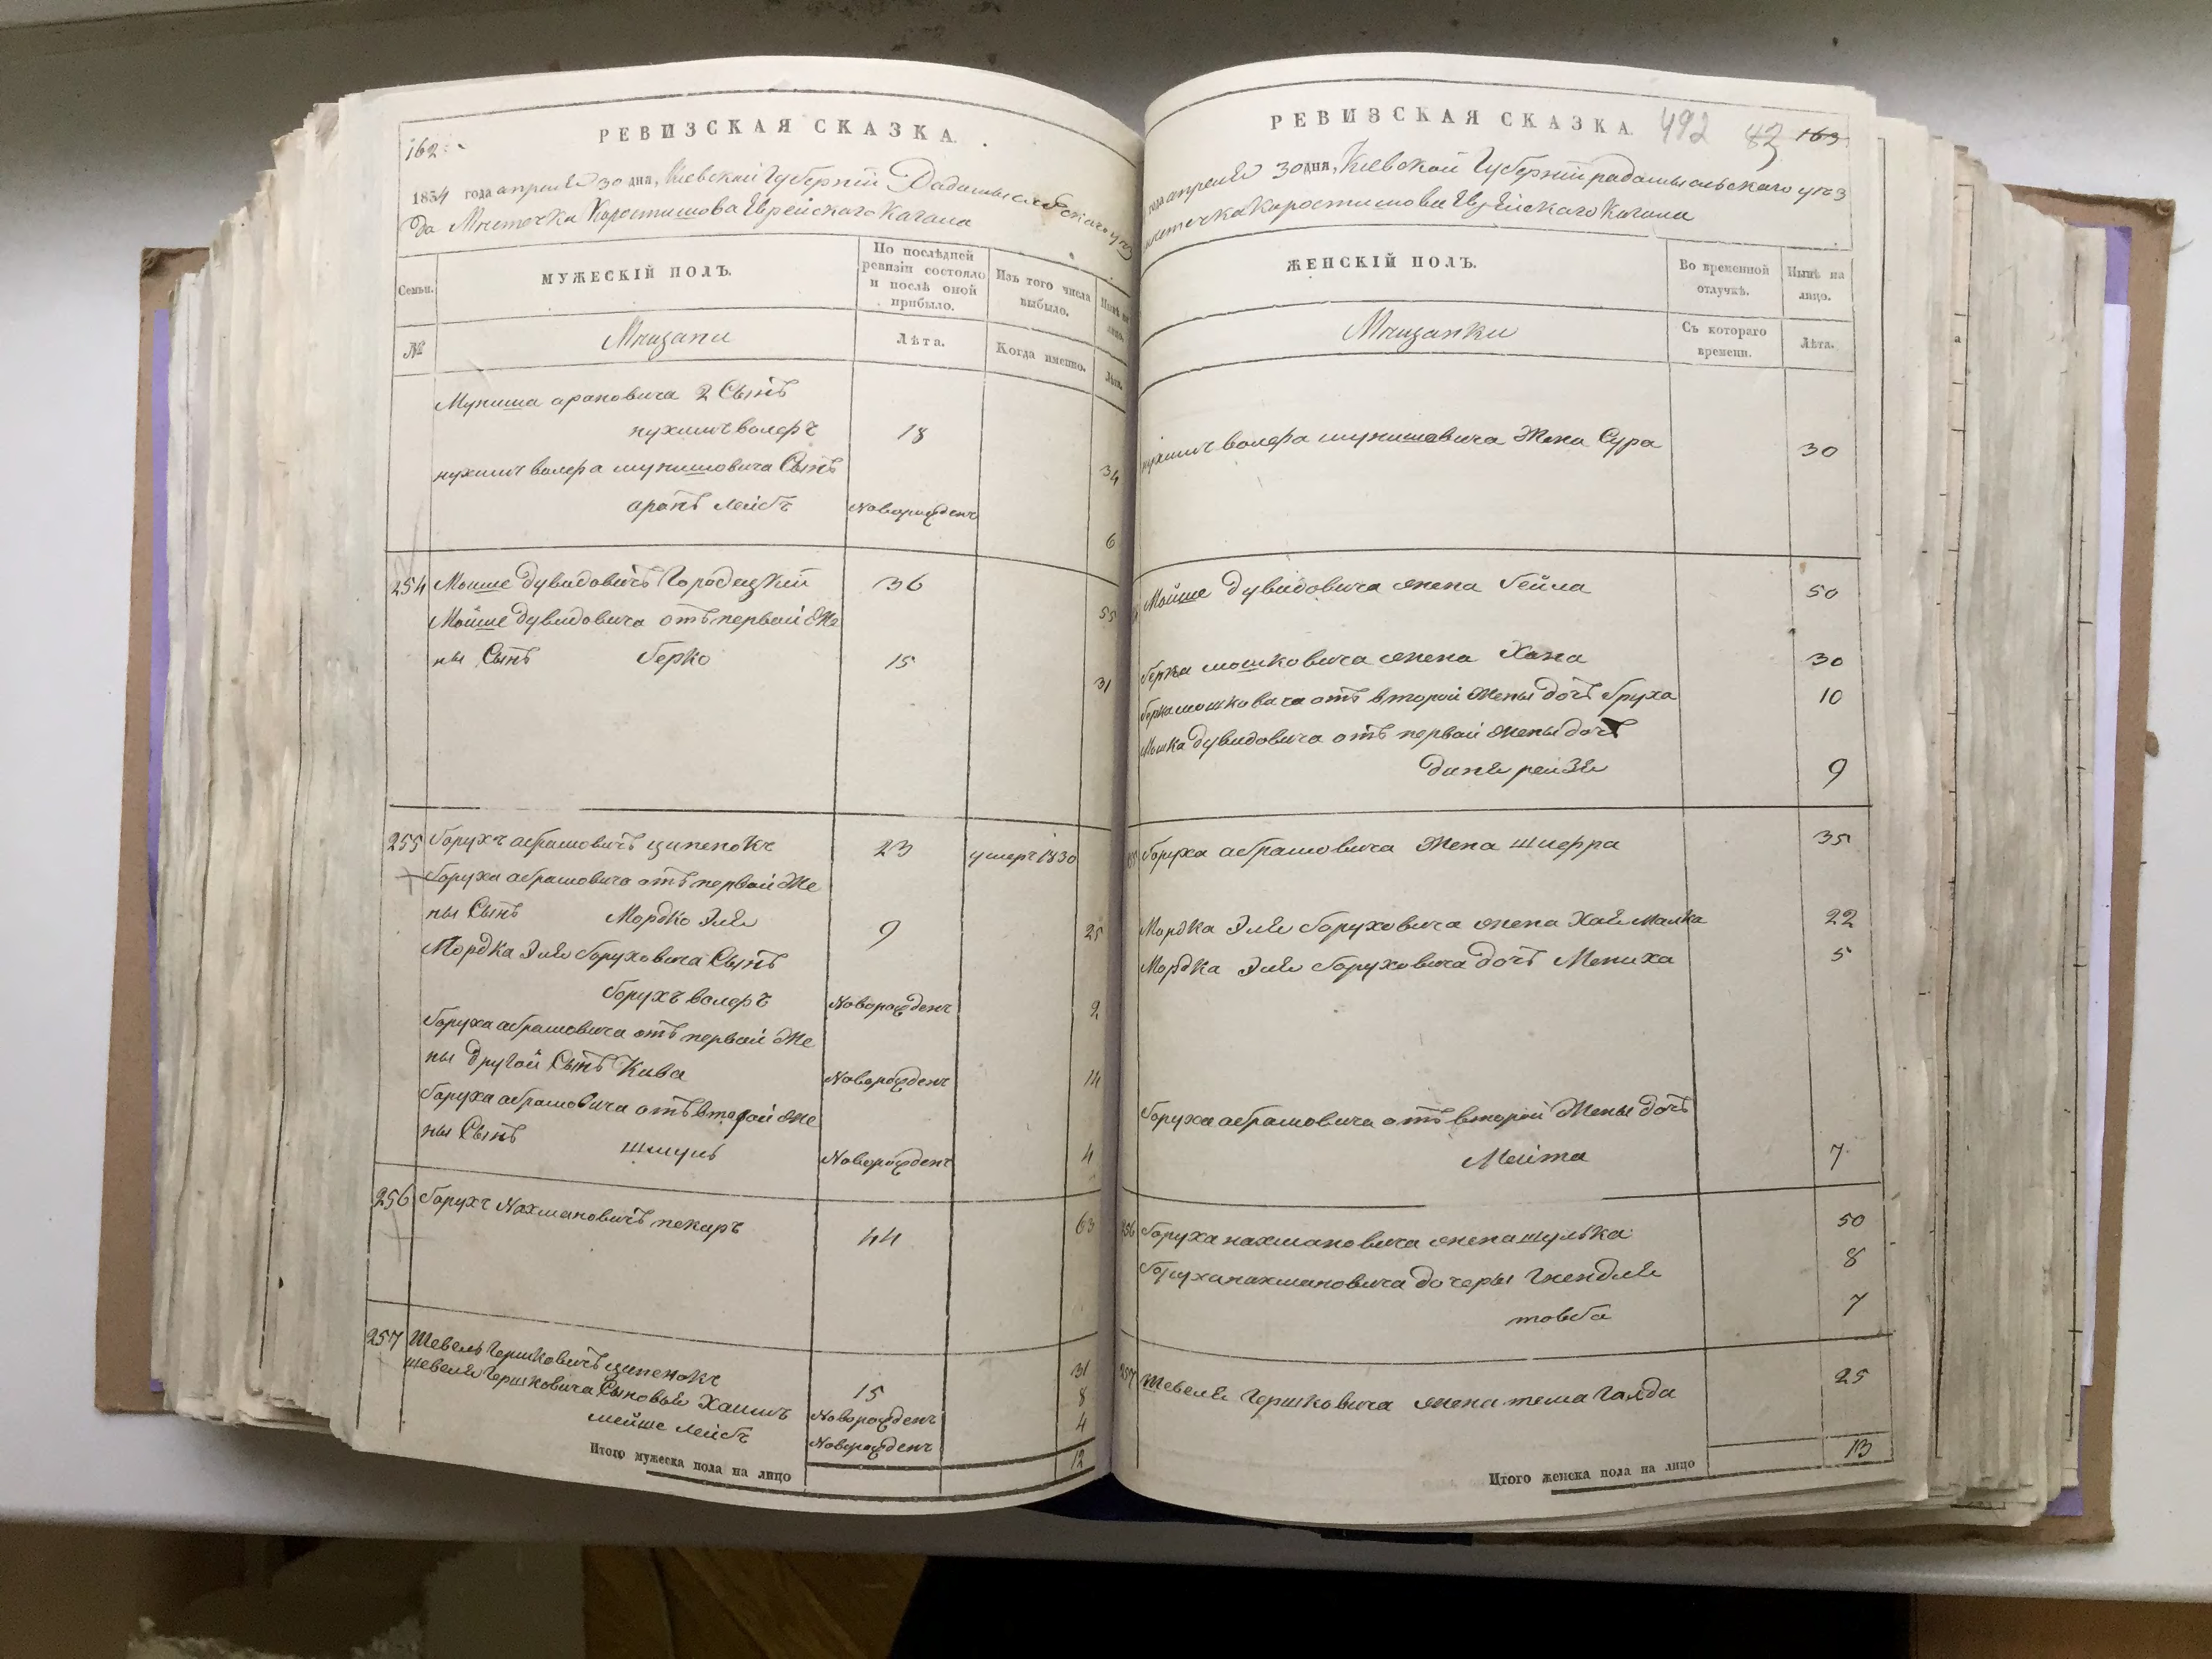 162
РЕВИЗСКАЯ СКАЗКА.
1834 года апреля 30 дня, Киевской Губернiи Радомысльского уез
да Местечка Коростишова Еврейского Кагала
Семьи.
МУЖЕСКІЙ ПОЛЪ.
По послѣдней ревизіи состояло и послѣ оной прибыло.
Изъ того числа выбыло.
Нынѣ на лицо.
№
Мещане
Лѣта.
Когда именно.
Лѣта.
Муниша ароновича 2 Сынъ
нухимъ волеръ 18 34
нухимъ волера мунишовича Сынъ
аронъ лейбъ Новорожденъ 6
254 Мошше Дувидовичъ Городецкiй 36 55
Мойше Дувидовича отъ первой Же
ны Сынъ берко 15 31
255 борухъ абрамовичъ ципенокъ 23 умеръ 1830
боруха абрамовича отъ первой Же
ны Сынъ Мордко Эля 9 25
Мордка Эля боруховича Сынъ
борухъ волеръ Новорожденъ 2
боруха абрамовича отъ первой Же
ны другой Сынъ Кива Новорожденъ 14
боруха абрамовича отъ второй же
ны Сынъ шмуль Новорожденъ 4
256 борухъ Нахмановичъ пекаръ 44 63
257 Шевель Гершковичъ ципенокъ 15 31
шевеля Гершковича Сыновья Хаимъ Новорожденъ 8
мейше лейбъ Новорожденъ 4
Итого мужеска пола на лицо 12
РЕВИЗСКАЯ СКАЗКА. 492 163
года апреля 30 дня, Киевской Губернiи радомысльского уез
местечка Коростишова Еврейского Кагала
ЖЕНСКІЙ ПОЛЪ.
Во временной отлучкѣ.
Нынѣ на лицо.
Мещанки
Съ котораго времени.
Лѣта.
нухимъ волера мунишовича Жена Сура 30
Мойше Дувидовича жена бейла 50
берка мошковича жена Хана 30
берка мошковича отъ второй Жены дочъ бруха 10
Мошка Дувидовича отъ первой жены дочъ
даня рейзя 9
боруха абрамовича Жена шиффра 35
Мордка Эля боруховича жена Хая малка 22
Мордка Эля боруховича дочъ Мениха 5
боруха абрамовича отъ второй Жены дочъ
Мейта 7
256 боруха нахмановича жена шулька 50
боруха нахмановича дочеры Гнендля 8
товба 7
257 Шевеля Гершковича жена тема Голда 25
Итого женска пола на лицо 13